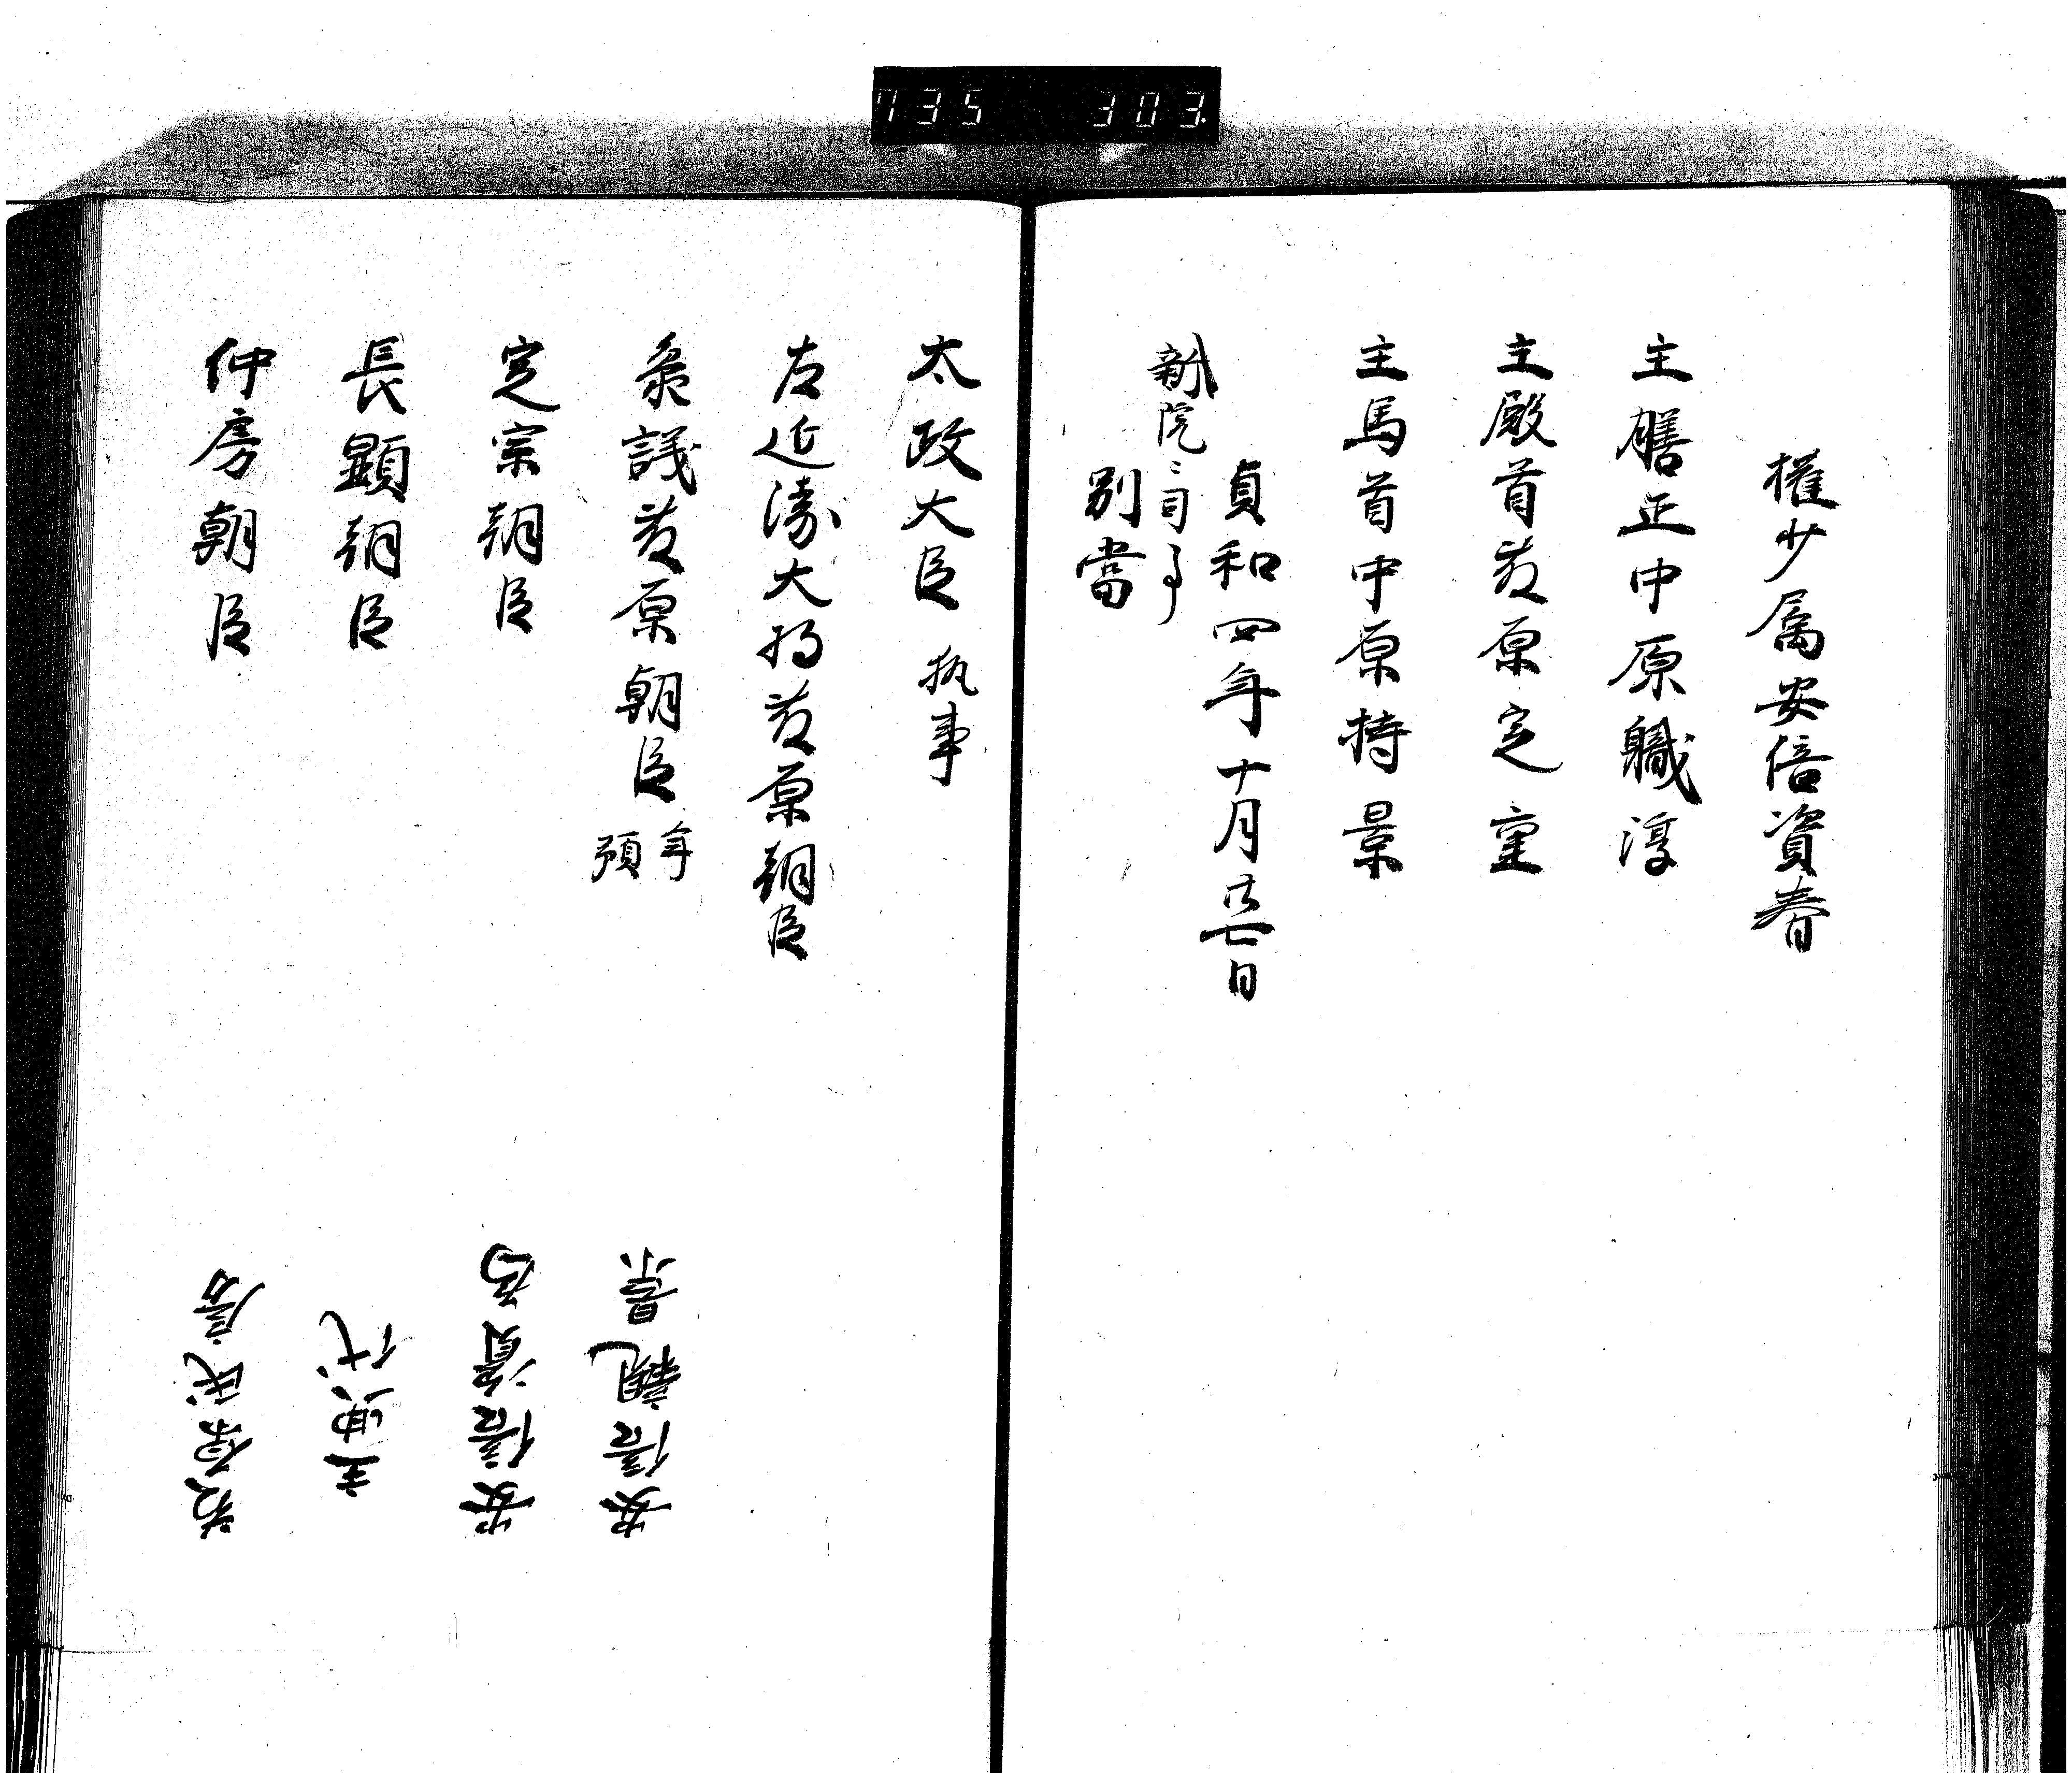 735 303
権少属安倍資春
主膳正中原職淳
主殿首藤原定重
主馬首中原持景
貞和四年十月廿七日
新院〻司事
別當
太政大臣 執事
左近衛大将藤原朝臣
参議藤原朝臣 年預
定宗朝臣
長顕朝臣
仲房朝臣
安倍親景
安倍資為
主典代
藤原成房